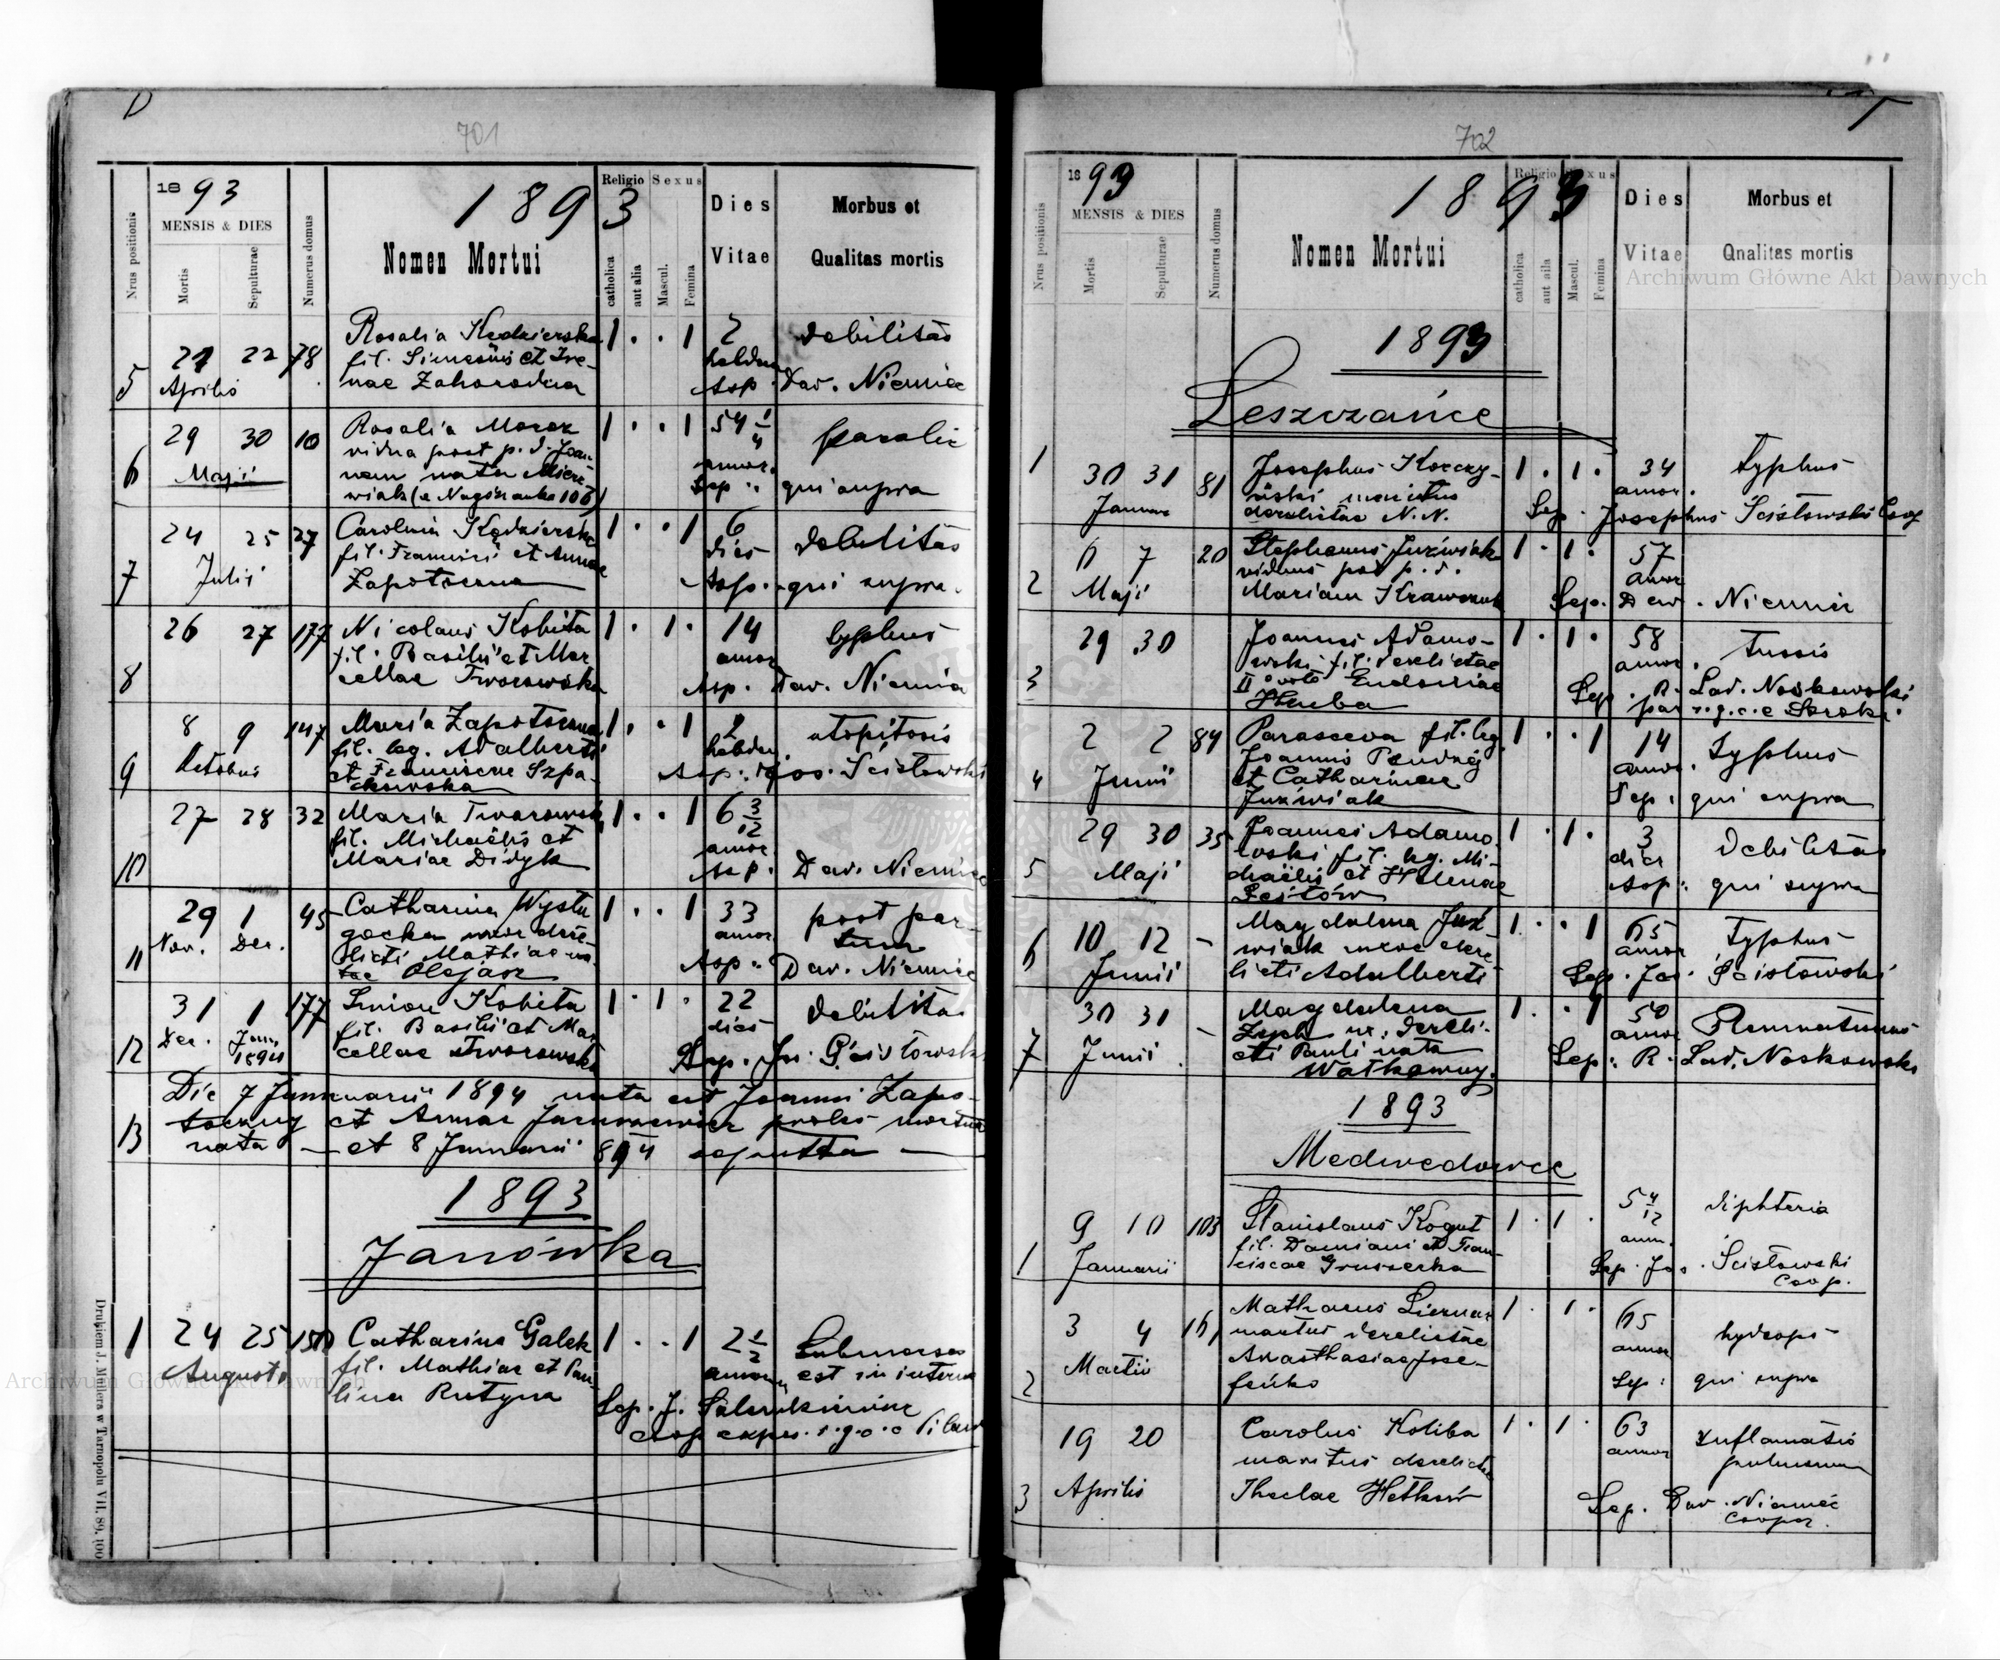 701
1893
1893
Nrus positionis
MENSIS & DIES
Mortis
Sepulturae
Numerus domus
Nomen Mortui
Religio
catholica
aut alia
Sexus
Mascul.
Femina
Dies
Vitae
Morbus et
Qualitas mortis
5 21 22 78
Aprilis
Rosalia Kędzierska
fil. Simeonis et Ire-
nae Zahorodna
1 . . 1 2
hebdom
debilitas
Asp. Dav. Niemiec
6 29 30 10
Maji
Rosalia Moroz
vidua post p. d. Joan-
nem nata
1 . . 1 54 1/4
annor.
Sep. qui supra
7 24 25 27
Julii
Carolina Kędzierska
fil. Francisci et Annae
Zapotoczna
1 . . 1 6
dies
debilitas
Asp. qui supra.
8 26 27 177
Nicolaus Kobita
fil. Basilii et Mar
cellae Tworowska
1 . 1 . 14
annor
typhus
Asp. Dav. Niemiec
9 8 9 147
Octobris
Maria Zapotoczna
fil. leg. Adalberti
et Franciscae Szpa-
kowska
1 . . 1 2
hebdom.
Asp. Jos. Scistowski
10 27 28 32
Maria Tworowska
fil. Michaelis et
Mariae Didyk
1 . . 1 6 3/12
annor
Asp. Dav. Niemiec
11 29 1 45
Nov. Dec.
Catharina Wystu
gocka uxor dere-
licti Mathiae na-
tae Olejarz
1 . . 1 33
annor
post par-
tum
Asp. Dav. Niemiec
12 31 1 177
Dec. Jan. 1894
Simon Kobita
fil. Basilii et Mar
cellae Tworowska
1 . 1 . 22
dies
debilitas
Sep. Jos. Scistowski
13 Die 7 Januarii 1894 nata est Joanni Zapo-
toczny et Annae proles mortua
nata — et 8 Januarii 894 sepulta —
1893
Janówka
1 24 25 150
Augusti
Catharina Galek
fil. Mathiae et Pau-
lina Rutyna
1 . . 1 2 1/2
annorum
Submersa
est in
Sep. J.
Coop expos. r.g.c.
Drukiem J. Müllera w Tarnopolu VII. 89. 100
702
1893
1893
Nrus positionis
MENSIS & DIES
Mortis
Sepulturae
Numerus domus
Nomen Mortui
Religio
catholica
aut aila
Sexus
Mascul.
Femina
Dies
Vitae
Morbus et
Qnalitas mortis
1893
Leszczańce
1 30 31 81
Januar
Josephus Korczy-
ński maritus
derelictae N. N.
1 . 1 . 34
annor.
typhus
Sep. Josephus Scistowski Coop
2 6 7 20
Maji
Stephanus Juźwiak
viduus post p. d.
Mariam Krawczuk
1 . 1 . 57
annor
Sep. Dav. Niemiec
3 29 30
Joannes Adamo-
wski fil. derelictae
II voto Eudoxiae
Hluba
1 . 1 . 58
annor.
tussis
Sep. R. Lad. Noskowski
par r.g.c.
4 2 2 84
Junii
Parasceva fil. leg.
Joannis
et Catharinae
Juźwiak
1 . . 1 14
annor.
typhus
Sep. qui supra
5 29 30 35
Maji
Joannes Adamo-
wski fil. leg. Mi-
chaelis et Helenae
1 . 1 . 3
dies
debilitas
Asp. qui supra
6 10 12 -
Junii
Magdalena Juź-
wiak uxor dere
licti Adalberti
1 . . 1 65
annor
typhus
Sep. Jos. Scistowski
7 30 31 -
Junii
Magdalena
Zych ux. dereli-
cti Pauli nata
1 . . 1 50
annor
Sep. R. Lad. Noskowski
1893
Medwedowce
1 9 10 103
Januarii
Stanislaus Kogut
fil. Damiani et Fran-
ciscae Gruszecka
1 . 1 . 5 4/12
ann.
diphteria
Sep. Jos. Scistowski
Coop.
2 3 4 161
Martii
Mathaeus
maritus derelictae
Anasthasiae Jose-
feńko
1 . 1 . 65
annor
hydrops
Sep. qui supra
3 19 20
Aprilis
Carolus Koliba
maritus derelictae
Theclae
1 . 1 . 63
annor
Inflamatio
pulmonum
Sep. Dav. Niemiec
Cooper.
Archiwum Główne Akt Dawnych
Archiwum Główne Akt Dawnych